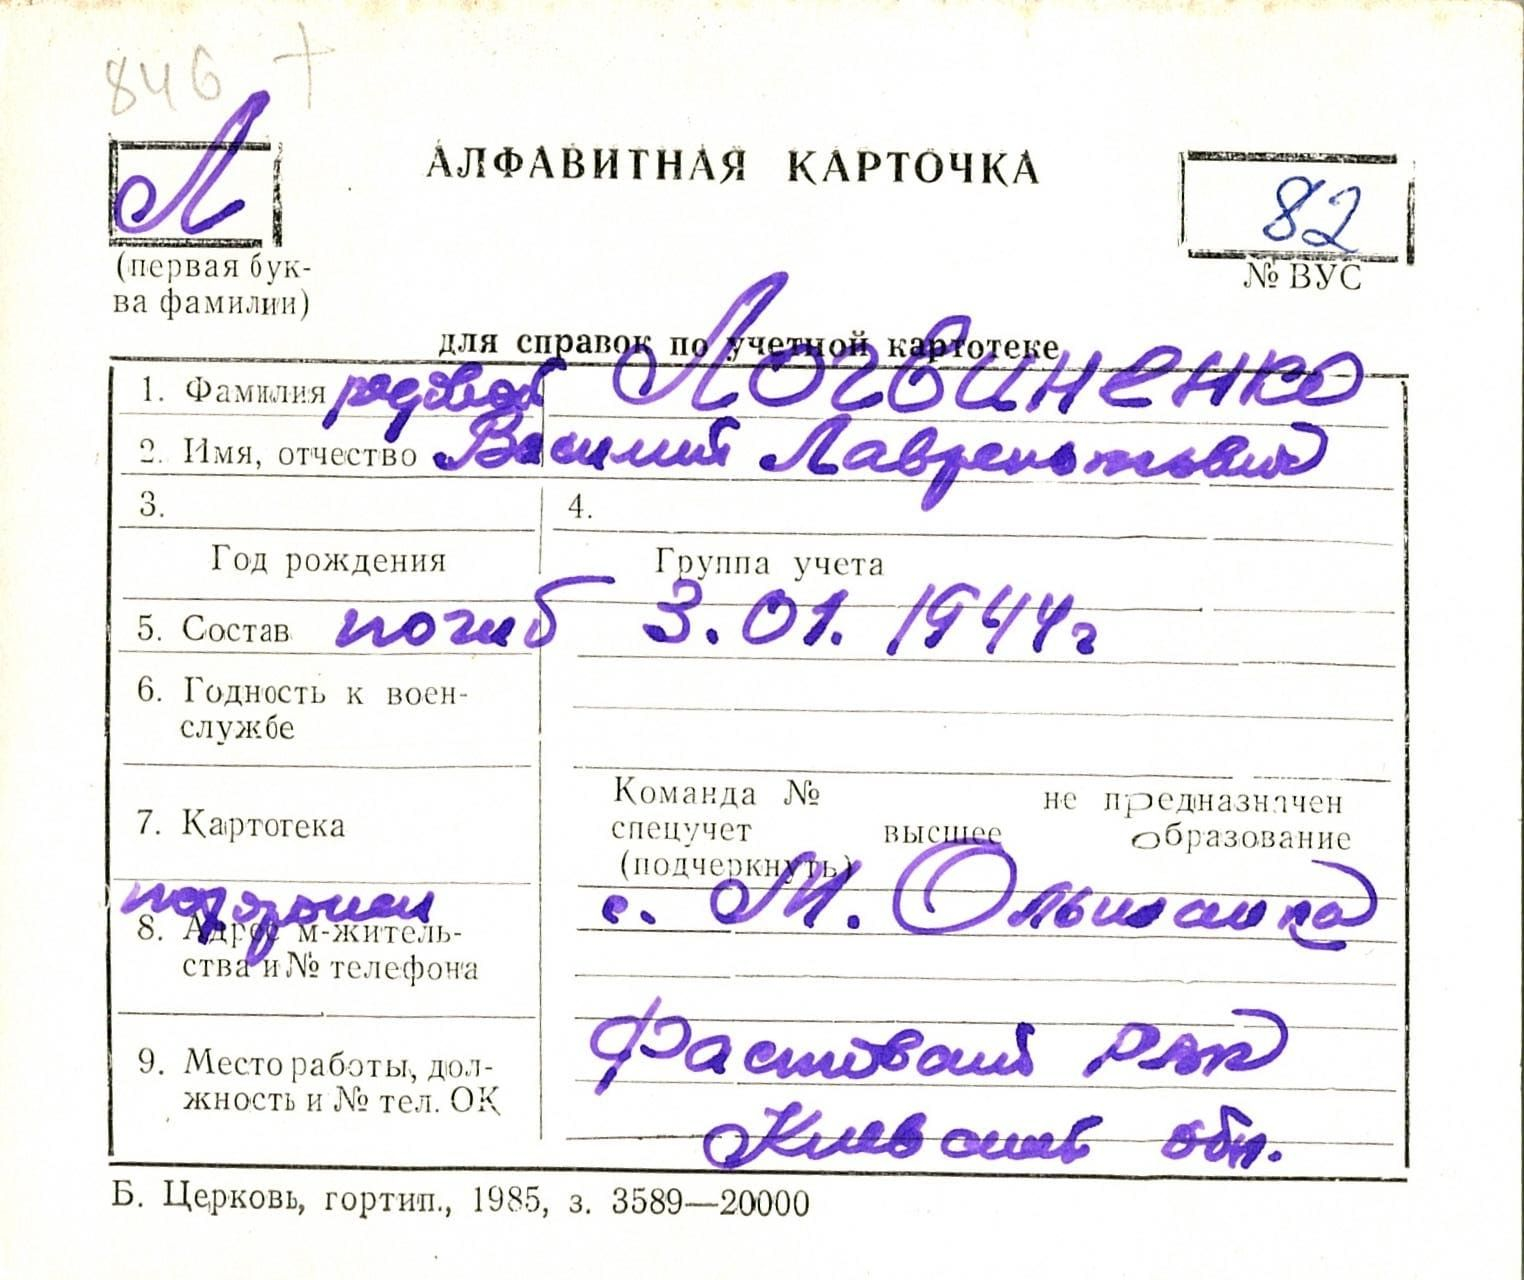 846 +
Л
АЛФАВИТНАЯ КАРТОЧКА
82
(первая бук-
ва фамилии)
№ ВУС
для справок по учетной картотеке
1. Фамилия рядовой Логвиненко
2. Имя, отчество Василий Лаврентьевич
3.
4.
Год рождения
Группа учета
5. Состав погиб 3.01.1944г
6. Годность к воен-
службе
7. Картотека
Команда № не предназначен
спецучет высшее образование
(подчеркнуть)
похоронен с. М. Ольшанка
8. Адрес м-житель-
ства и № телефона
Фастовский р-н
9. Место работы, дол-
жность и № тел. ОК
Киевской обл.
Б. Церковь, гортип., 1985, з. 3589—20000